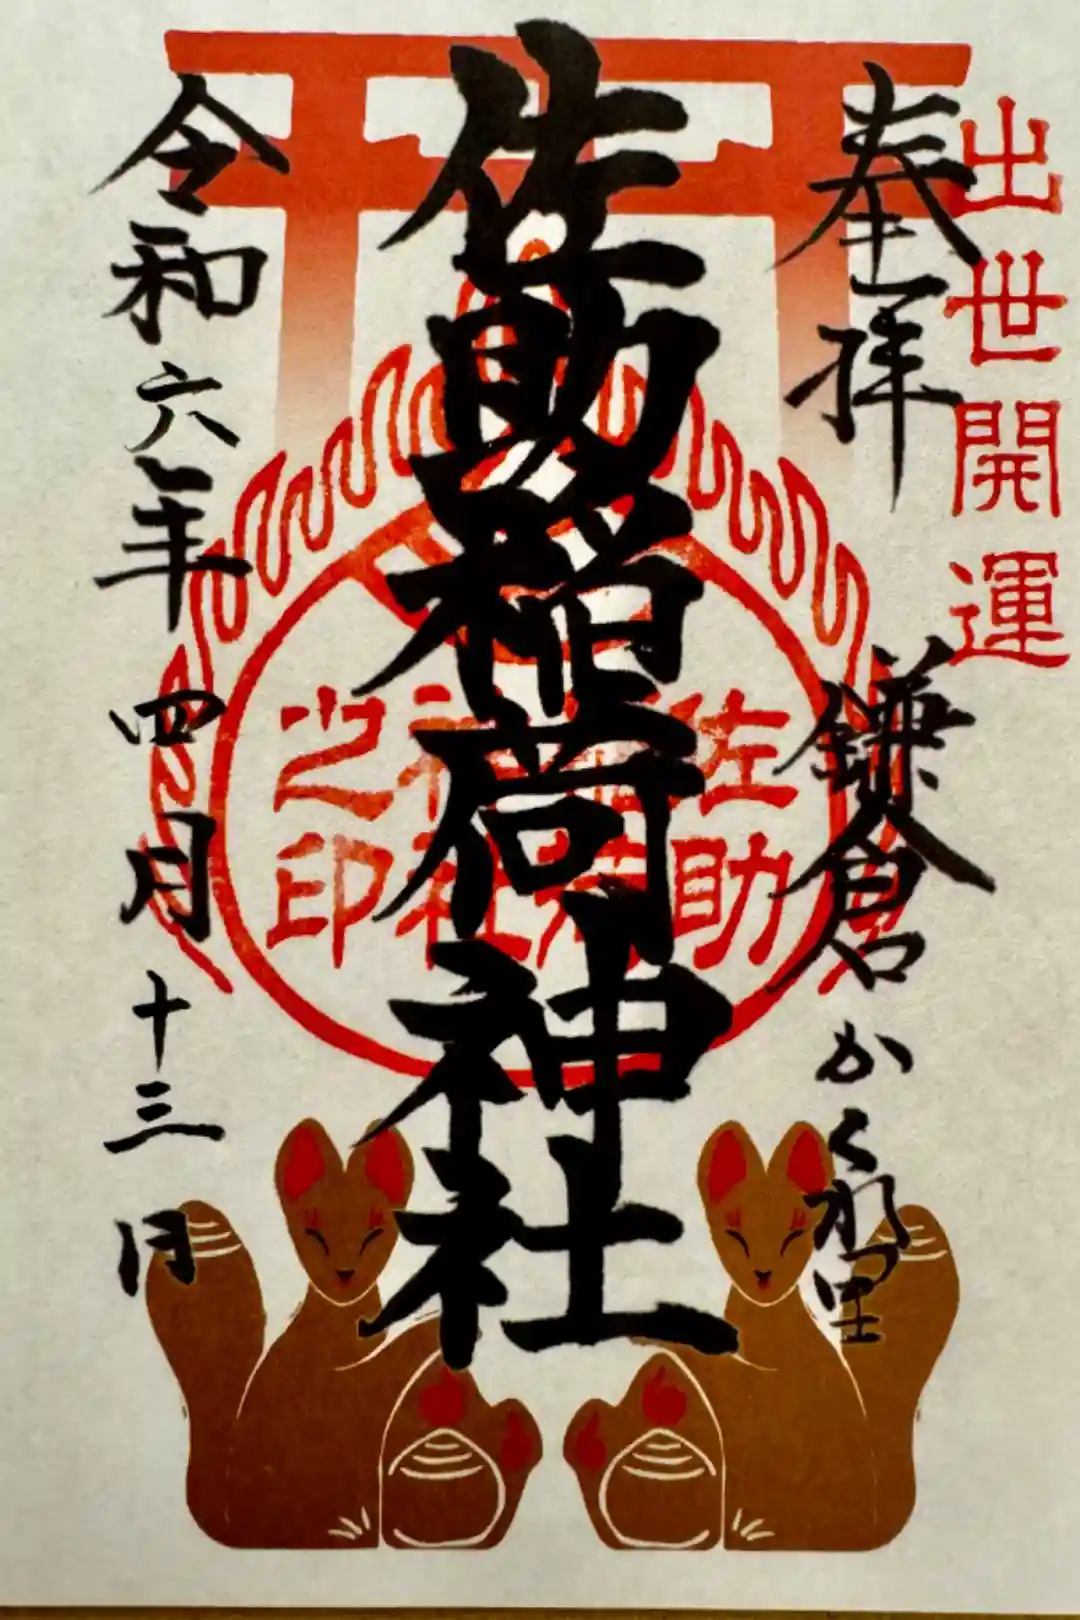 出世開運
奉拝 鎌倉かくれ里
佐助稲荷神社
佐助
稲荷
神社
之印
令和六年四月十三日